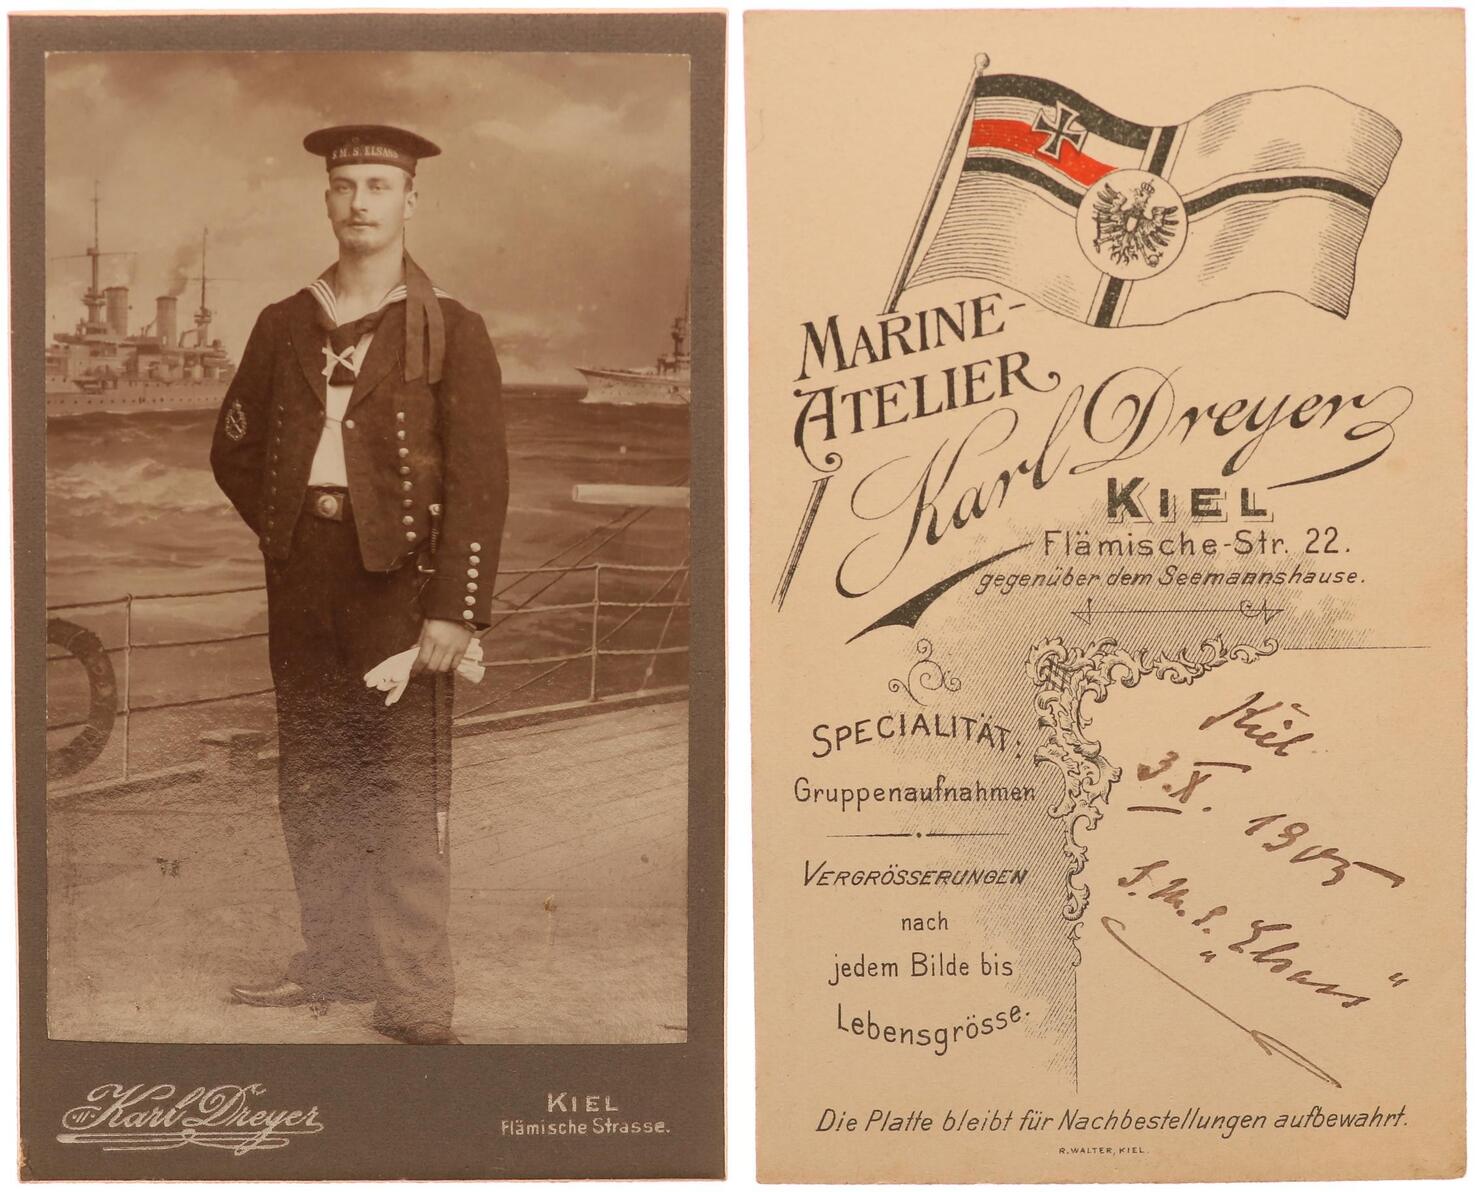 S.M.S. ELSASS
Karl Dreyer
KIEL
Flämische Strasse.
MARINE-
ATELIER
Karl Dreyer
KIEL
Flämische-Str. 22.
gegenüber dem Seemannshause.
SPECIALITÄT:
Gruppenaufnahmen
VERGRÖSSERUNGEN
nach
jedem Bilde bis
Lebensgrösse.
Kiel
3.X. 1905
S.M.S. „Elsass“
Die Platte bleibt für Nachbestellungen aufbewahrt.
R. WALTER, KIEL.